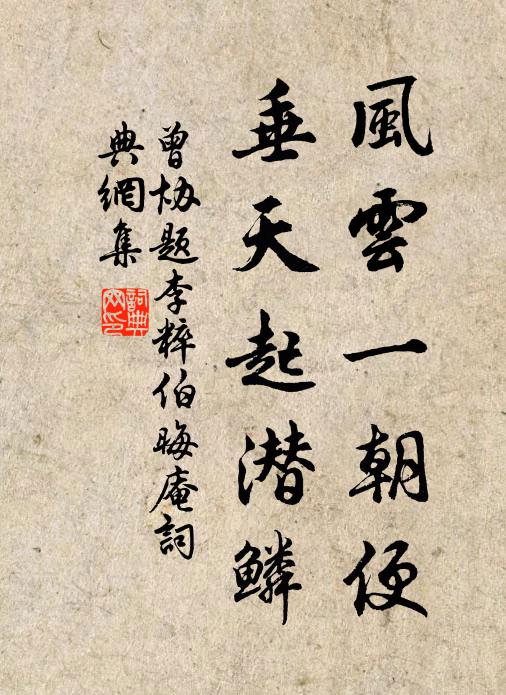 風雲一朝便
垂天起潜鳞
曾协题李粹伯晦庵詞
典網集
詞典
网印